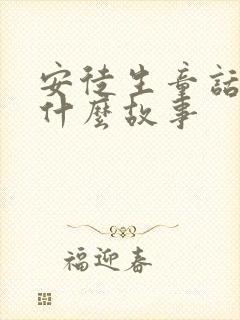 安徒生童話
什麼故事
福迎春